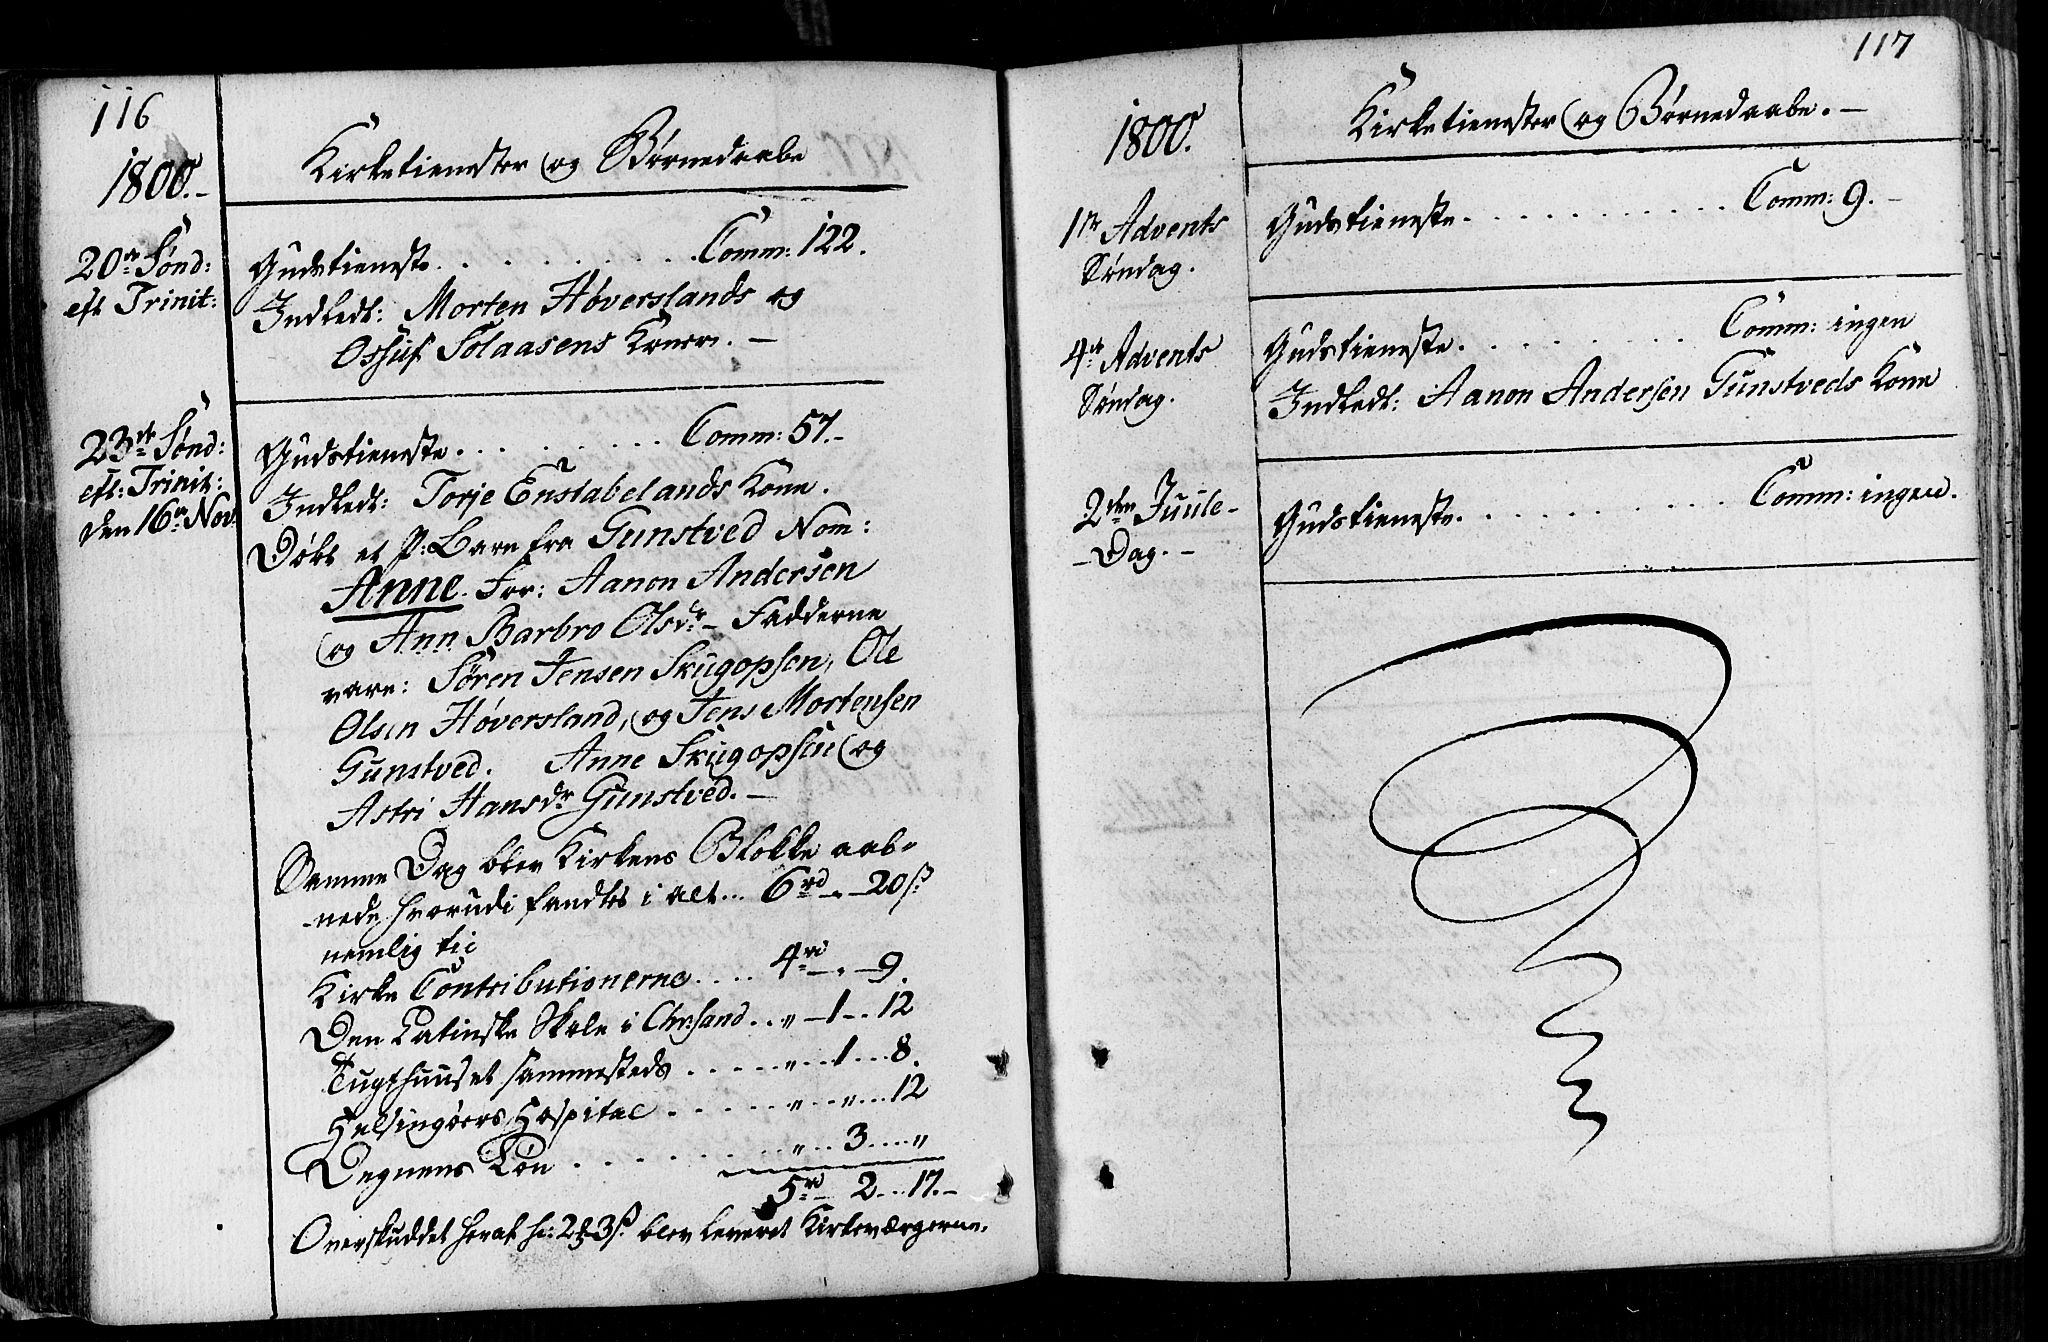 116
1800.-
Kirketienester og Børnedaabe
20de Sønd:
eft Trinit:
Gudstieneste . . . . . . . . . . Comm: 122.
Indledt: Morten Høverslands og
Ossuf Solaasens Koner. -
23de Sønd:
eft: Trinit:
den 16de Nov:
Gudstieneste . . . . . . . . . Comm: 57.-
Indledt: Torje Enstabelands Kone.
Døbt et P: Barn fra Gunstved Nom:
Anne. For: Aanon Andersen
og Ann Barbro Olsdr - Fadderne
vare: Søren Jensen Skugopsen, Ole
Olsen Høversland, og Jens Mortensen
Gunstved. Anne Skugopsen og
Astri Hansdr Gunstved. -
Samme Dag blev Kirkens Blokke aab-
-nede, hvorudi fandtes i alt... 6rd. - 20ß
nemlig til
Kirke Contributionerne . . . . 4rd - . - 9.
Den Latinske Skole i Chrsand . . " - 1 - . 12
Tugthuuset sammesteds . . . . . " . . 1 . . . 8.
Helsingøers Hospital . . . . . . " . . " . . . 12
Degnens Løn . . . . . . . . " . . . 3 . . . . "
5rd - 2 . . . 17. -
Overskuddet heraf h: 2 3ß blev leveret Kirkeværgerne.
117
1800.
Kirketienester og Børnedaabe. -
1ste Advents
Søndag.
Gudstieneste . . . . . . . . . . . . Comm: 9. -
4de Advents
Søndag.
Gudstieneste . . . . . . . . . Comm: ingen
Indledt: Aanon Andersen Gunstveds Kone
2den Juule-
-Dag. -
Gudstieneste . . . . . . . . . . . Comm: ingen.